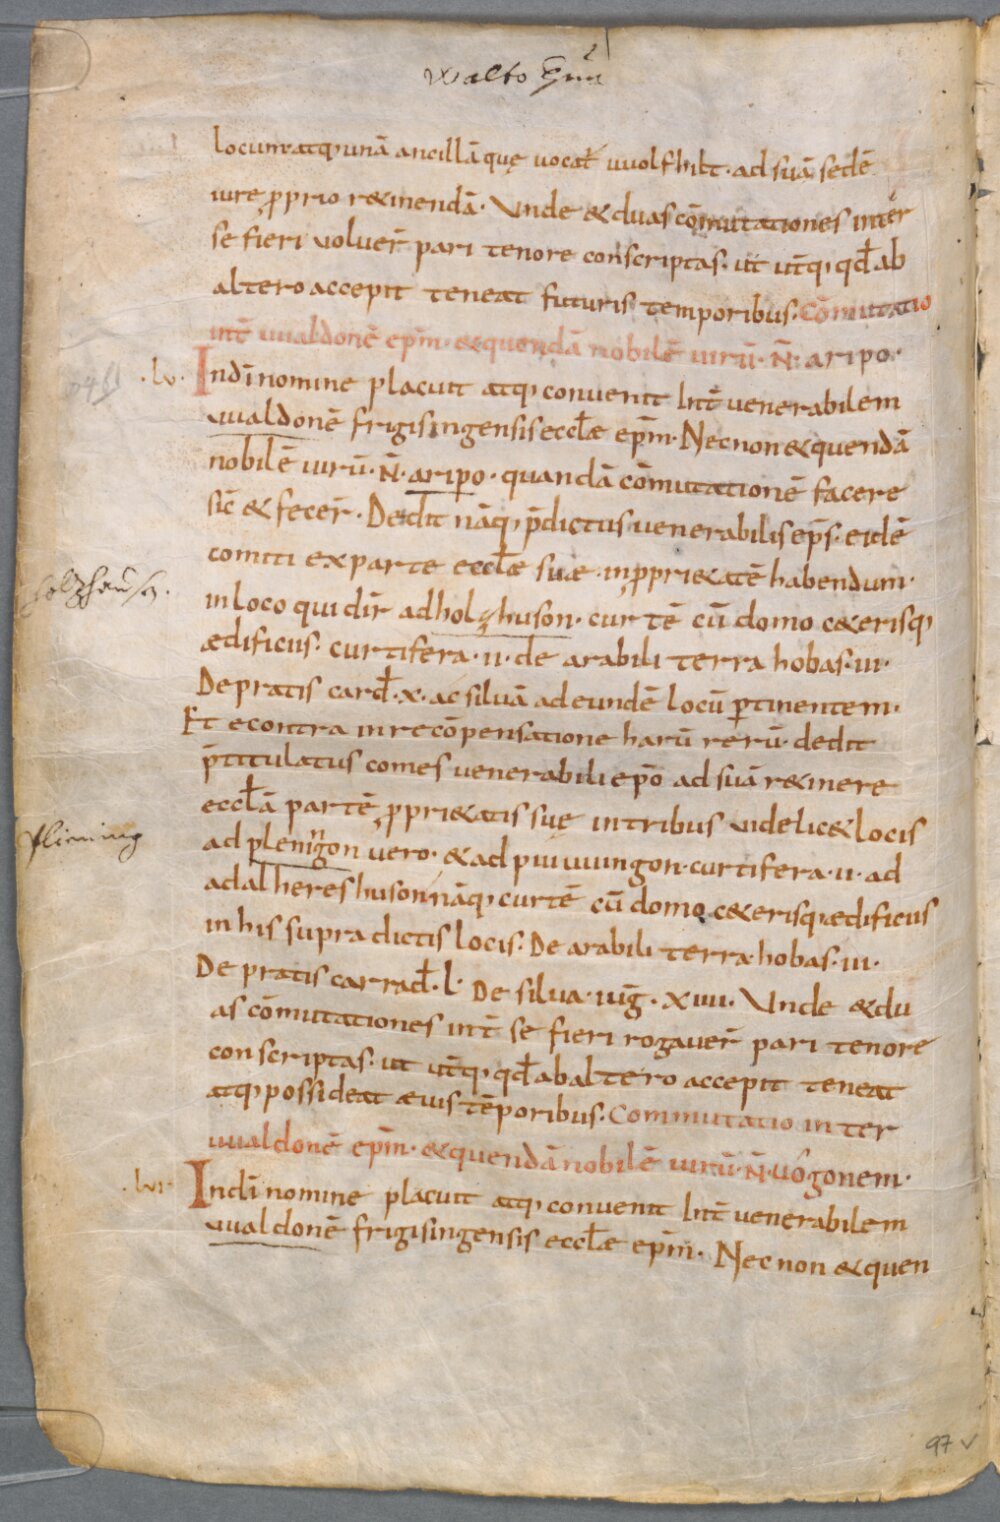 Walto
locum atq; unā ancillā quę uocat̄ uuolfhilt · ad suā sedē
iure p̱prio r&inendā · Unde & duas cōmutationes inter
se fieri uoluer̄ pari tenore conscriptas · ut ut̄q; qd̄ ab
altero accepit teneat futuris temporibus · Cōmutatio
int̄ uualdonē epm̄ · & quendā nobilē uirū · N̄ · aripo ·
· lv · In dī nomine placuit atq; conuenit int̄ uenerabilem
uualdonē frigisingensis eccłæ epm̄ · Nec non & quendā
nobilē uirū · N̄ · aripo · quandā cōmutationē facere
sic̄ & fecer̄ · Dedit nāq; p̄dictus uenerabilis ep̄s · eidē
comiti ex parte eccłæ suæ in p̱pri&atē habendum ·
holzhausn.
in loco qui dir̄ ad holzhuson · curtē cū domo c&erisq;
ædificiis · curtifera · ii · de arabili terra hobas · iii ·
De pratis card̄ · x · ac siluā ad eundē locū p̱tinentem ·
Et econtra in recōpensatione harū rerū dedit
p̄titulatus comes uenerabili ep̄o ad suā r&inere
eccłā partē p̱pri&atis suę in tribus uidelic& locis
fliming
ad pleningon uero · & ad piuuingon · curtifera · ii · ad
adalhereshuson nāq; curtē cū domo c&erisq; ædificiis
in his supra dictis locis · De arabili terra hobas · iii ·
De pratis carrad̄ · l · De silua iuḡ · xiiii · Unde & du
as cōmutationes int̄ se fieri rogauer̄ pari tenore
conscriptas · ut ut̄q; qd̄ ab altero accepit teneat
atq; possideat æuis tēporibus · Commutatio inter
uualdonē epm̄ · & quendā nobilē uirū · N̄ · uogonem ·
· lvi · In dī nomine placuit atq; conuenit int̄ uenerabilem
uualdonē frigisingensis eccłæ epm̄ · Nec non & quen
97 v